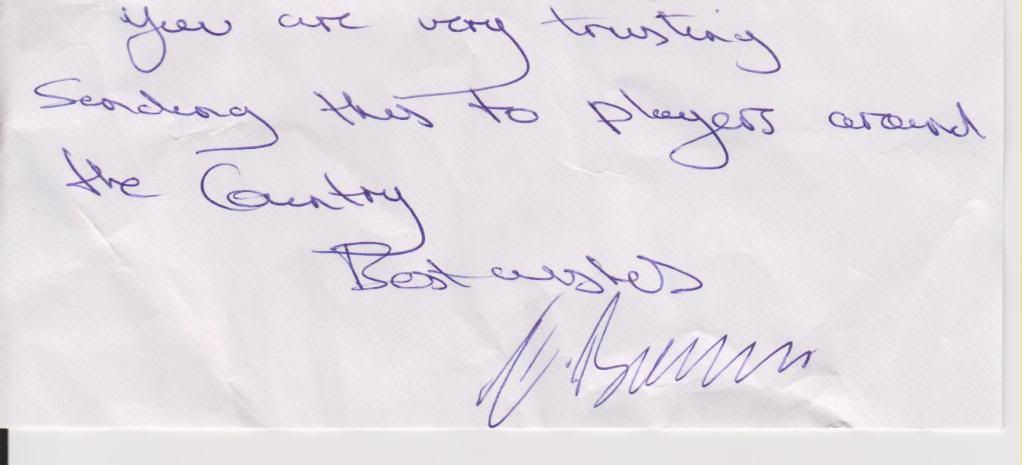 You are very trusting
Sending this to players around
the Country
Best wishes